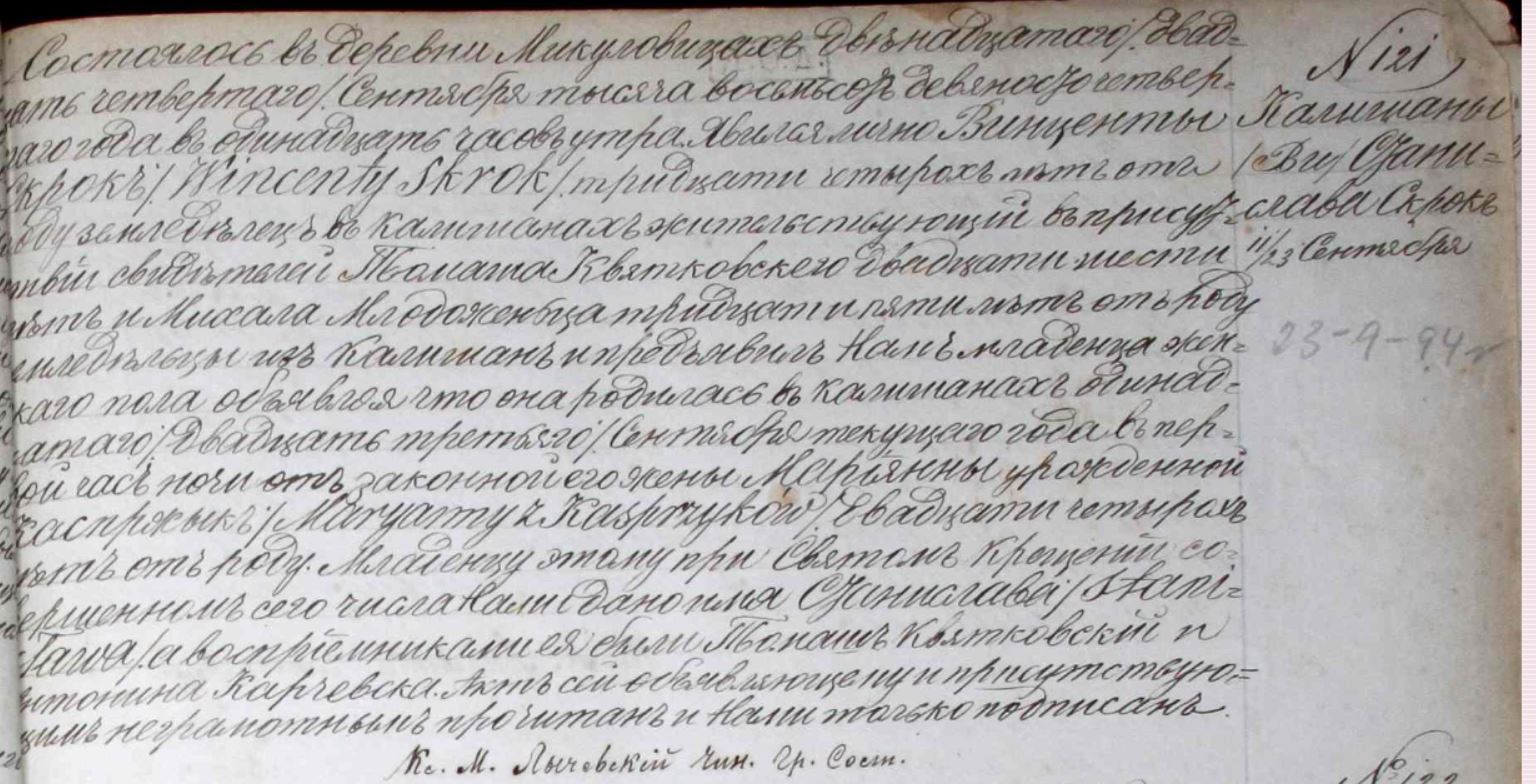 Состоялось въ деревни Микуловицахъ двѣнадцатаго/. двад=
цать четвертаго/. Сентября тысяча восемьсотъ девяносто четвер=
таго года въ одинадцать часовъ утра. Явился лично Винценты
Скрокъ /Wincenty Skrok/. тридцати четырохъ лѣтъ отъ
роду земледѣлецъ въ Калишанахъ жительствующій въ присут=
ствіи свидѣтелей Томаша Квятковскего двадцати шести
лѣтъ и Михала Млодоженьца тридцати пяти лѣтъ отъ роду
земледѣльцы изъ Калишанъ и предъявилъ Намъ младенца жен=
скаго пола объявляя что она родилась въ Калишанахъ одинад=
цатаго/. двадцать третьяго/. Сентября текущаго года въ пер=
вой часъ ночи отъ законной его жены Марїянны урожденной
Каспржыкъ /Maryanny z Kasprzyków/. двадцати четырохъ
лѣтъ отъ роду. Младенцу этому при Святомъ Крещеніи со=
вершенномъ сего числа Нами дано имя Станислава /Stani=
sława/. а воспріемниками ея были Томашъ Квятковскій и
Антонина Карчевска. Актъ сей объявляющему и присутствую=
щимъ неграмотнымъ прочитанъ и Нами только подписанъ.
Кс. М. Лычевскій Чин. Гр. Сост.
N 121
Калишаны
/Ви/ Стани=
слава Скрокъ
11/23 Сентября
23-9-94 r